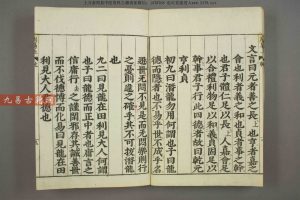 文言曰元者善之長也亨者嘉之
會也利者義之和也貞者事之幹
也君子體仁足以長人嘉會足
以合禮利物足以和義貞固足以
幹事君子行此四德者故曰乾元
亨利貞
初九曰潛龍勿用何謂也子曰龍
德而隱者也不易乎世不成乎名
遯世无悶不見是而无悶樂則行
之憂則違之確乎其不可拔潛龍
也
九二曰見龍在田利見大人何謂
也子曰龍德而正中者也庸言之
信庸行之謹閑邪存其誠善世
而不伐德博而化易曰見龍在田
利見大人君德也
九易古籍網